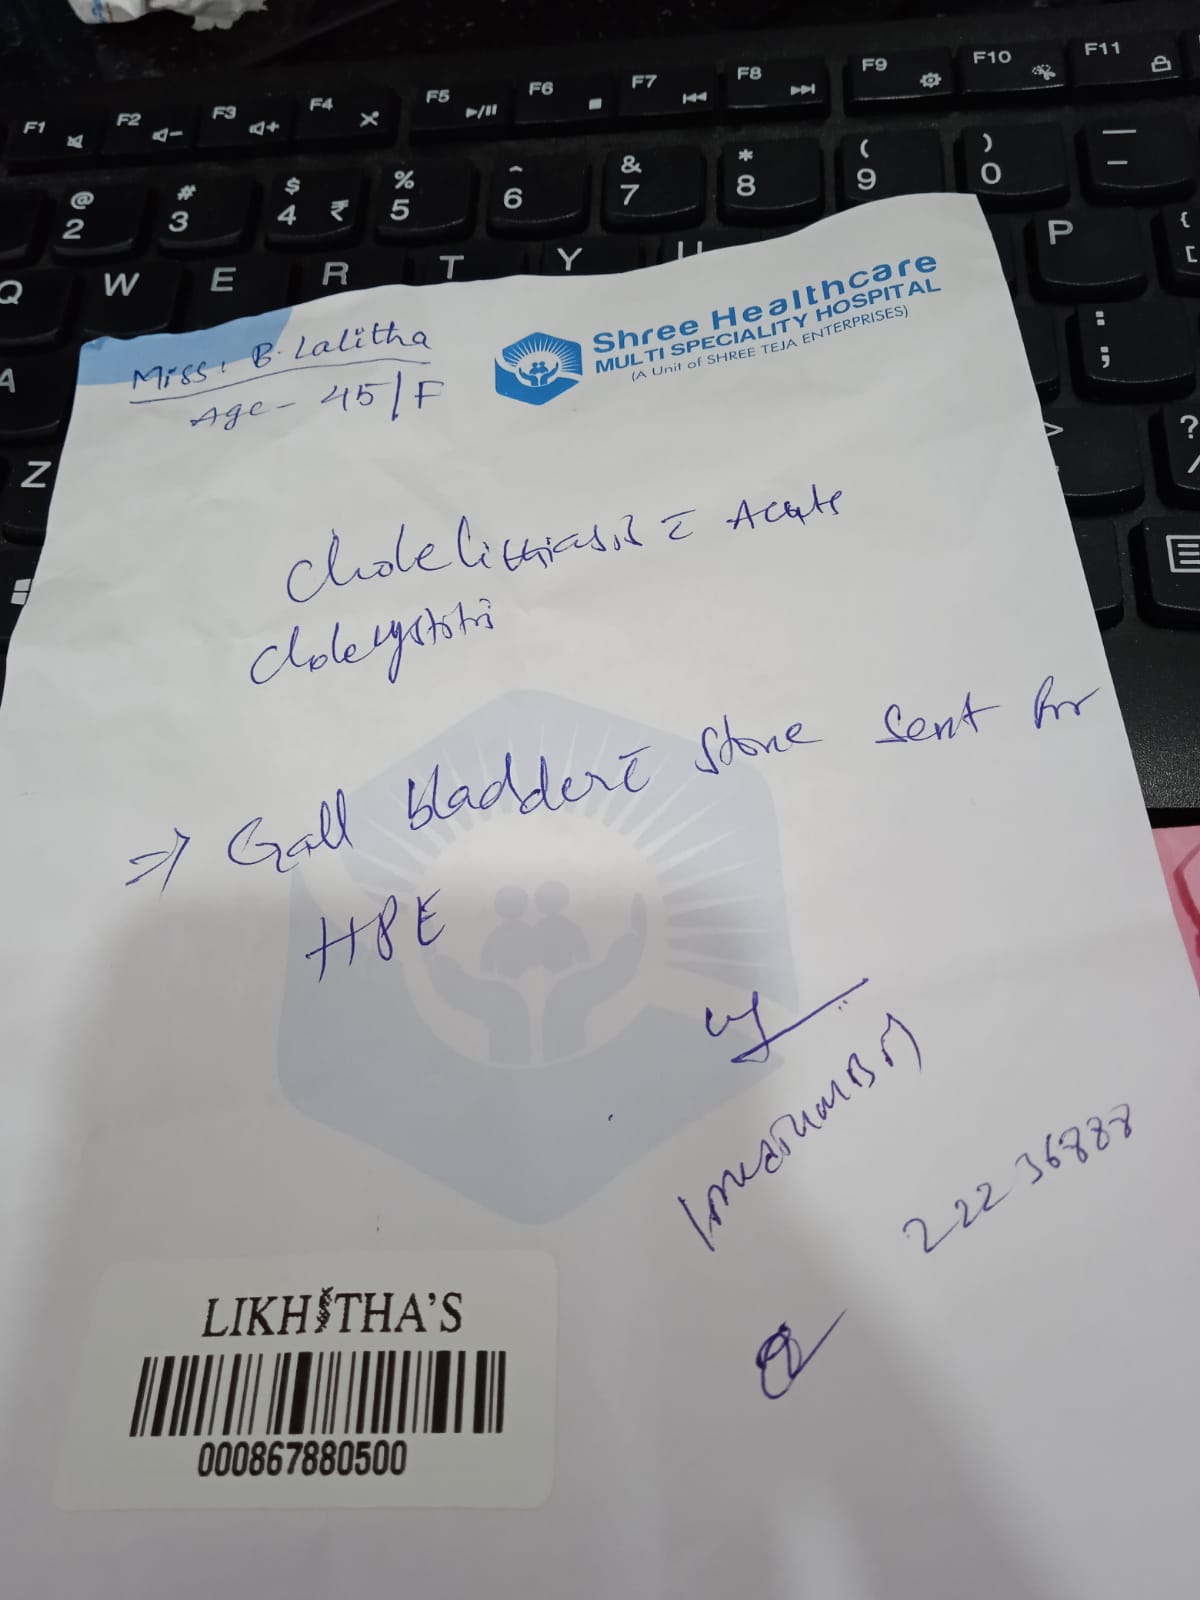 Miss: B. Lalitha
Age - 45/F
Shree Healthcare
MULTI SPECIALITY HOSPITAL
(A Unit of SHREE TEJA ENTERPRISES)
Cholelithiasis c̄ Acute
Cholecystitis
⇒ Gall bladder c̄ stone sent for
HPE
22236888
LIKHITHA'S
000867880500
F1
F2
F3
F4
F5
F6
F7
F8
F9
F10
F11
@ 2
# 3
$ 4 ₹
% 5
^ 6
& 7
* 8
( 9
) 0
Q W E R T Y U P
A
: ;
Z